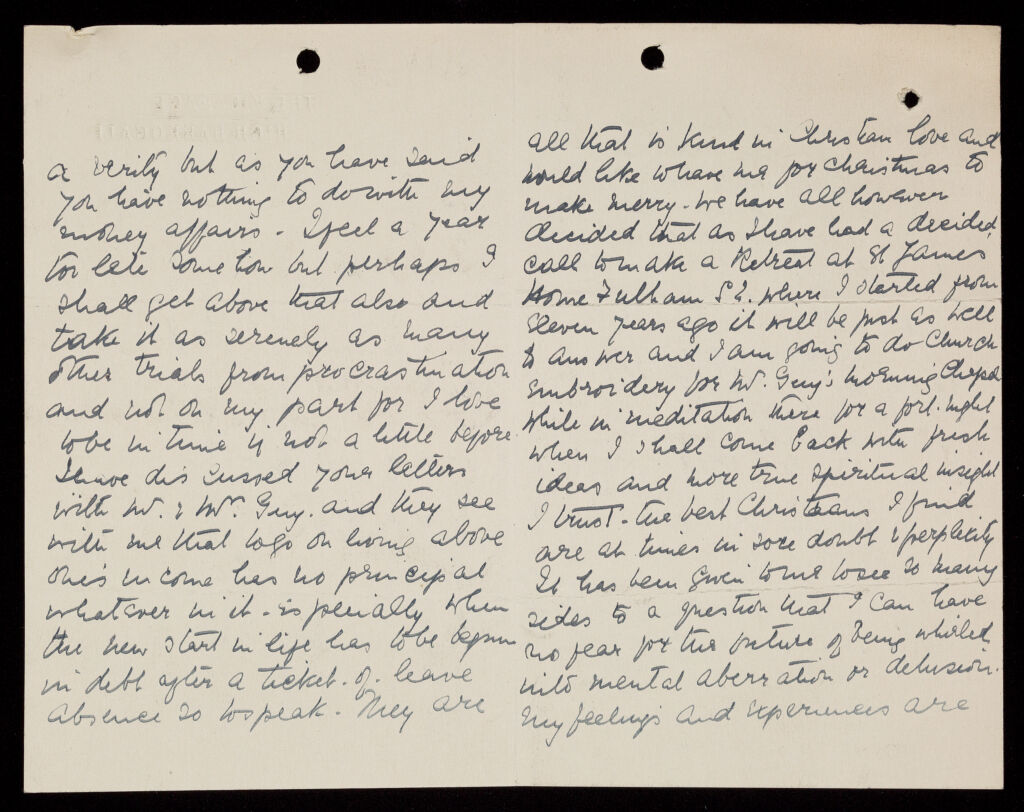 a verity but as you have said
you have nothing to do with my
money affairs - I feel a year
too late somehow but perhaps I
shall get above that also and
take it as serenely as many
other trials from procrastination
and not on my part for I love
to be in time if not a little before
I have discussed your letters
with Mr. & Mrs. Guy. and they see
with me that to go on living above
one's income has no principal
whatever in it - especially when
the new start in life has to be begun
in debt after a ticket. of. leave
absence so to speak - They are
all that is kind in Christian love and
would like to have me for Christmas to
make merry - We have all however
decided that as I have had a decided
call to make a Retreat at St James
Home Fulham S.E. where I started from
Eleven years ago it will be just as well
to answer and I am going to do Church
Embroidery for Mr. Guy's morning Chapel
while in meditation there for a fort. night
when I shall come back with fresh
ideas and more true spiritual insight
I trust - the best Christians I find
are at times in sore doubt & perplexity
It has been given to me to see so many
sides to a question that I can have
no fear for the future of being
into mental aberration or delusion.
My feelings and experiences are